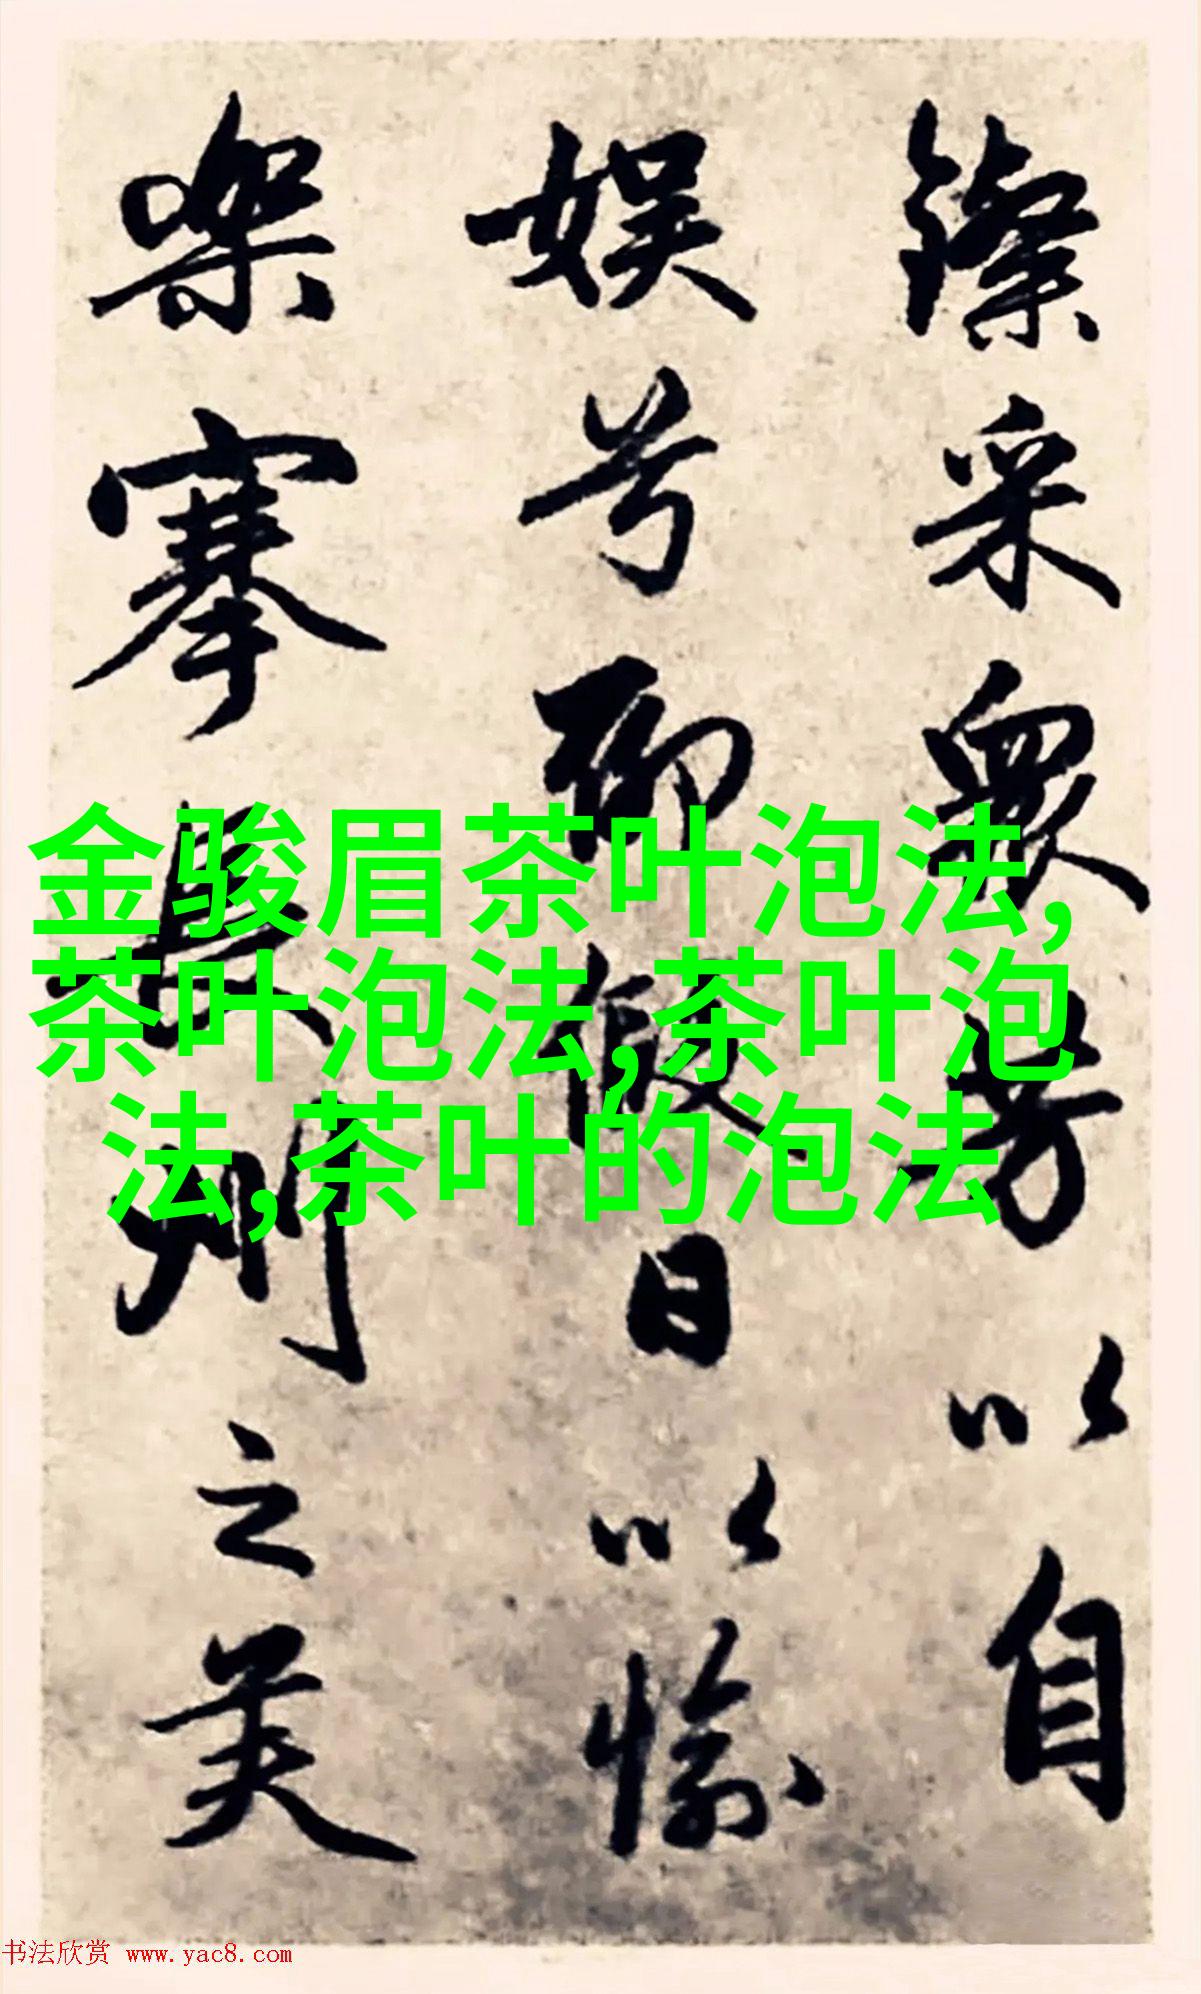 采眾芳以自
娱兮聊假日以愉
樂搴長洲之芙
金骏眉茶叶泡法,
茶叶泡法,茶叶泡
法,茶叶的泡法
书法欣赏 www.yac8.com